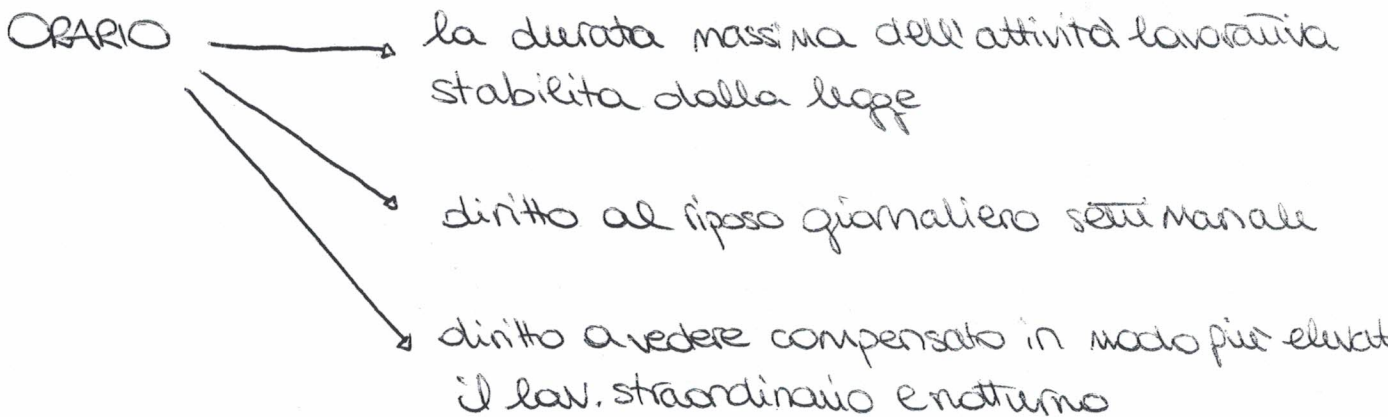 ORARIO
la durata massima dell'attività lavorativa
stabilita dalla legge
diritto al riposo giornaliero settimanale
diritto a vedere compensato in modo più elevat
il lav. straordinario e notturno